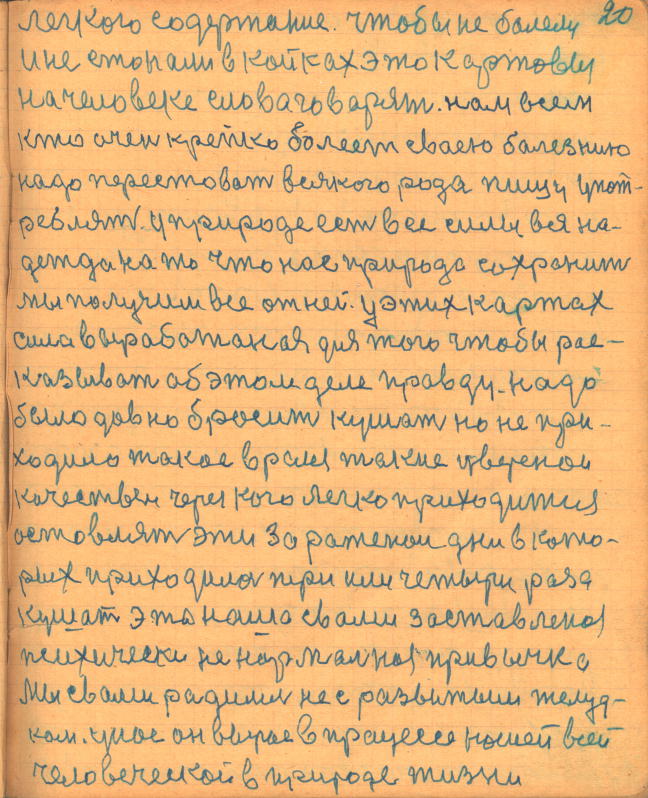 20
легкого содержание. чтобы не болели
и не стонали в койках это картовы
на человеке слова говарят. нам всем
кто очен крепко болеет сваею балезнию
надо перестоват всякого рода пищу упот-
реблят. у природе ест все силы вся на-
дежда на то что нас природа сохранит
мы получим все от ней. у этих картах
сила выработаная для того чтобы рас-
казыват об этом деле правду. надо
было довно бросит кушат но не при-
ходило такое время такие
качествен через кого легко приходится
оставлят эти заражоном дни в кото-
рых приходилос три или четыри раза
кушат это наша свами заставленая
психически не нармалная привычка
Мы свами радили не с развитым желуд-
ком. у нас он вырас в працессе нашей всей
человеческой в природе жизни